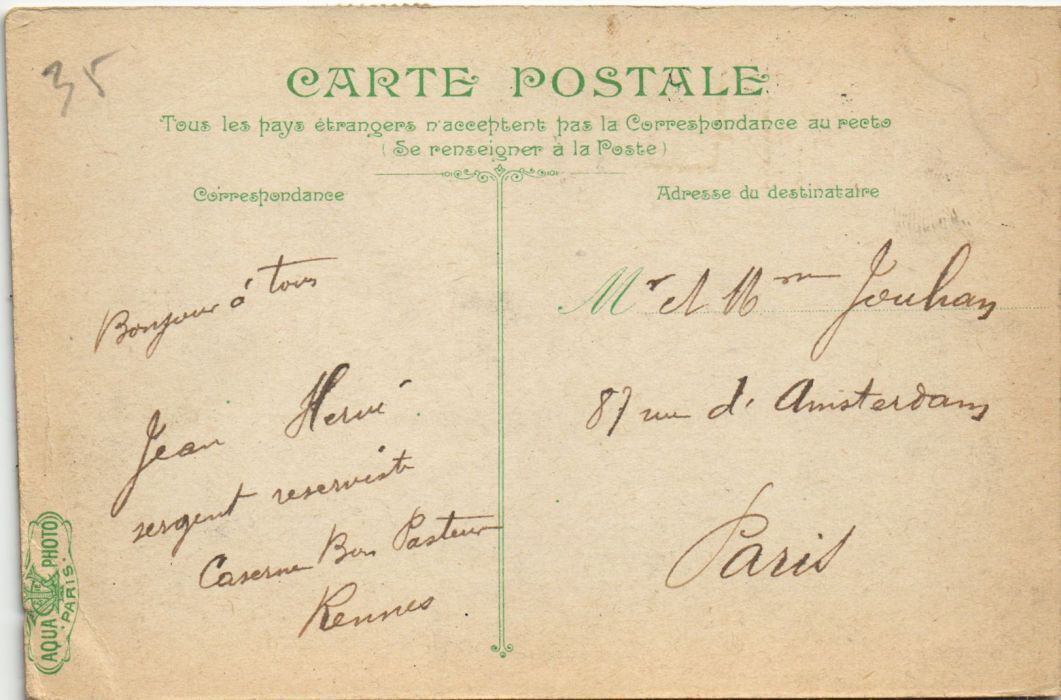 35
CARTE POSTALE
Tous les pays étrangers n'acceptent pas la Correspondance au recto
(Se renseigner à la Poste)
Correspondance
Bonjour à tous
Jean Hervé
sergent reserviste
Caserne Bon Pasteur
Rennes
Adresse du destinataire
Mr et Mme Jouhan
87 rue d'Amsterdam
Paris
AQUA PHOTO
PARIS